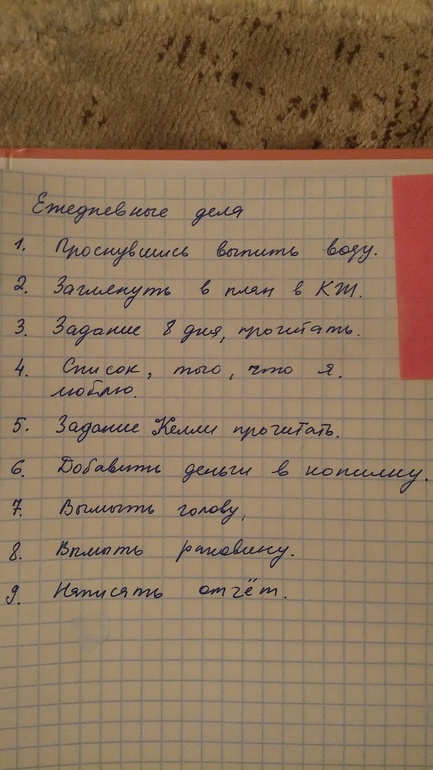 Ежедневные дела
1. Проснувшись выпить воду.
2. Заглянуть в план в КЖ.
3. Задание 8 дня, прочитать.
4. Список, того, что я.
люблю.
5. Задание Келли прочитать.
6. Добавить деньги в копилку.
7. Вымыть голову,
8. Вымыть раковину.
9. Написать отчёт.